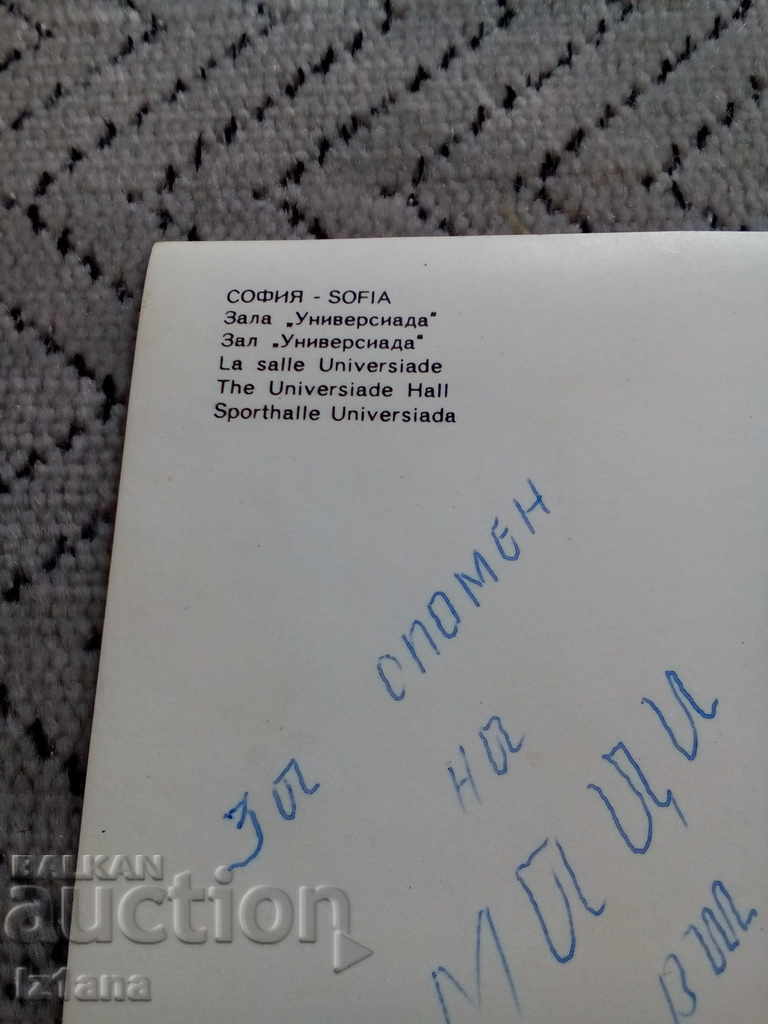 СОФИЯ - SOFIA
Зала „Универсиада"
Зал „Универсиада"
La salle Universiade
The Universiade Hall
Sporthalle Universiada
За спомен
на
Маци
BALKAN
auction
Iz1ana